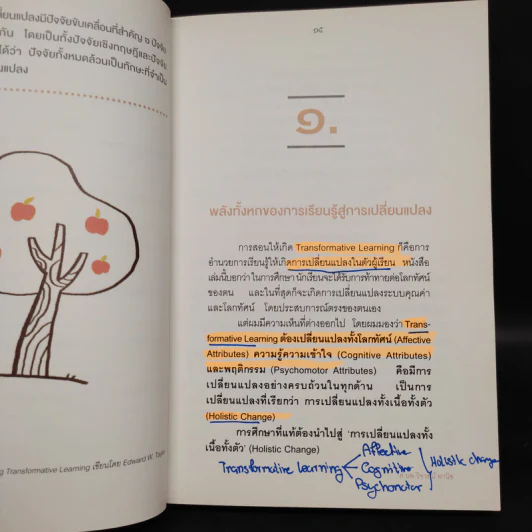 ลี่ยนแปลงมีปัจจัยขับเคลื่อนที่สำคัญ ๖ ปัจจัย
กัน โดยเป็นทั้งปัจจัยเชิงทฤษฎีและปัจจัย
ได้ว่า ปัจจัยทั้งหมดล้วนเป็นทักษะที่จำเป็น
นแปลง
ng Transformative Learning เขียนโดย Edward W. Taylor
๑๕
๑.
พลังทั้งหกของการเรียนรู้สู่การเปลี่ยนแปลง
การสอนให้เกิด Transformative Learning ก็คือการ
อำนวยการเรียนรู้ให้เกิดการเปลี่ยนแปลงในตัวผู้เรียน หนังสือ
เล่มนี้บอกว่า ในการศึกษา นักเรียนจะได้รับการท้าทายต่อโลกทัศน์
ของตน และในที่สุดก็จะเกิดการเปลี่ยนแปลงระบบคุณค่า
และโลกทัศน์ โดยประสบการณ์ตรงของตนเอง
แต่ผมมีความเห็นที่ต่างออกไป โดยผมมองว่า Trans-
formative Learning ต้องเปลี่ยนแปลงทั้งโลกทัศน์ (Affective
Attributes) ความรู้ความเข้าใจ (Cognitive Attributes)
และพฤติกรรม (Psychomotor Attributes) คือมีการ
เปลี่ยนแปลงอย่างครบถ้วนในทุกด้าน เป็นการ
เปลี่ยนแปลงที่เรียกว่า การเปลี่ยนแปลงทั้งเนื้อทั้งตัว
(Holistic Change)
การศึกษาที่แท้ต้องนำไปสู่ 'การเปลี่ยนแปลงทั้ง
เนื้อทั้งตัว' (Holistic Change)
Transformative learning
Affective
Cognitive
Psychomotor
Holistic change